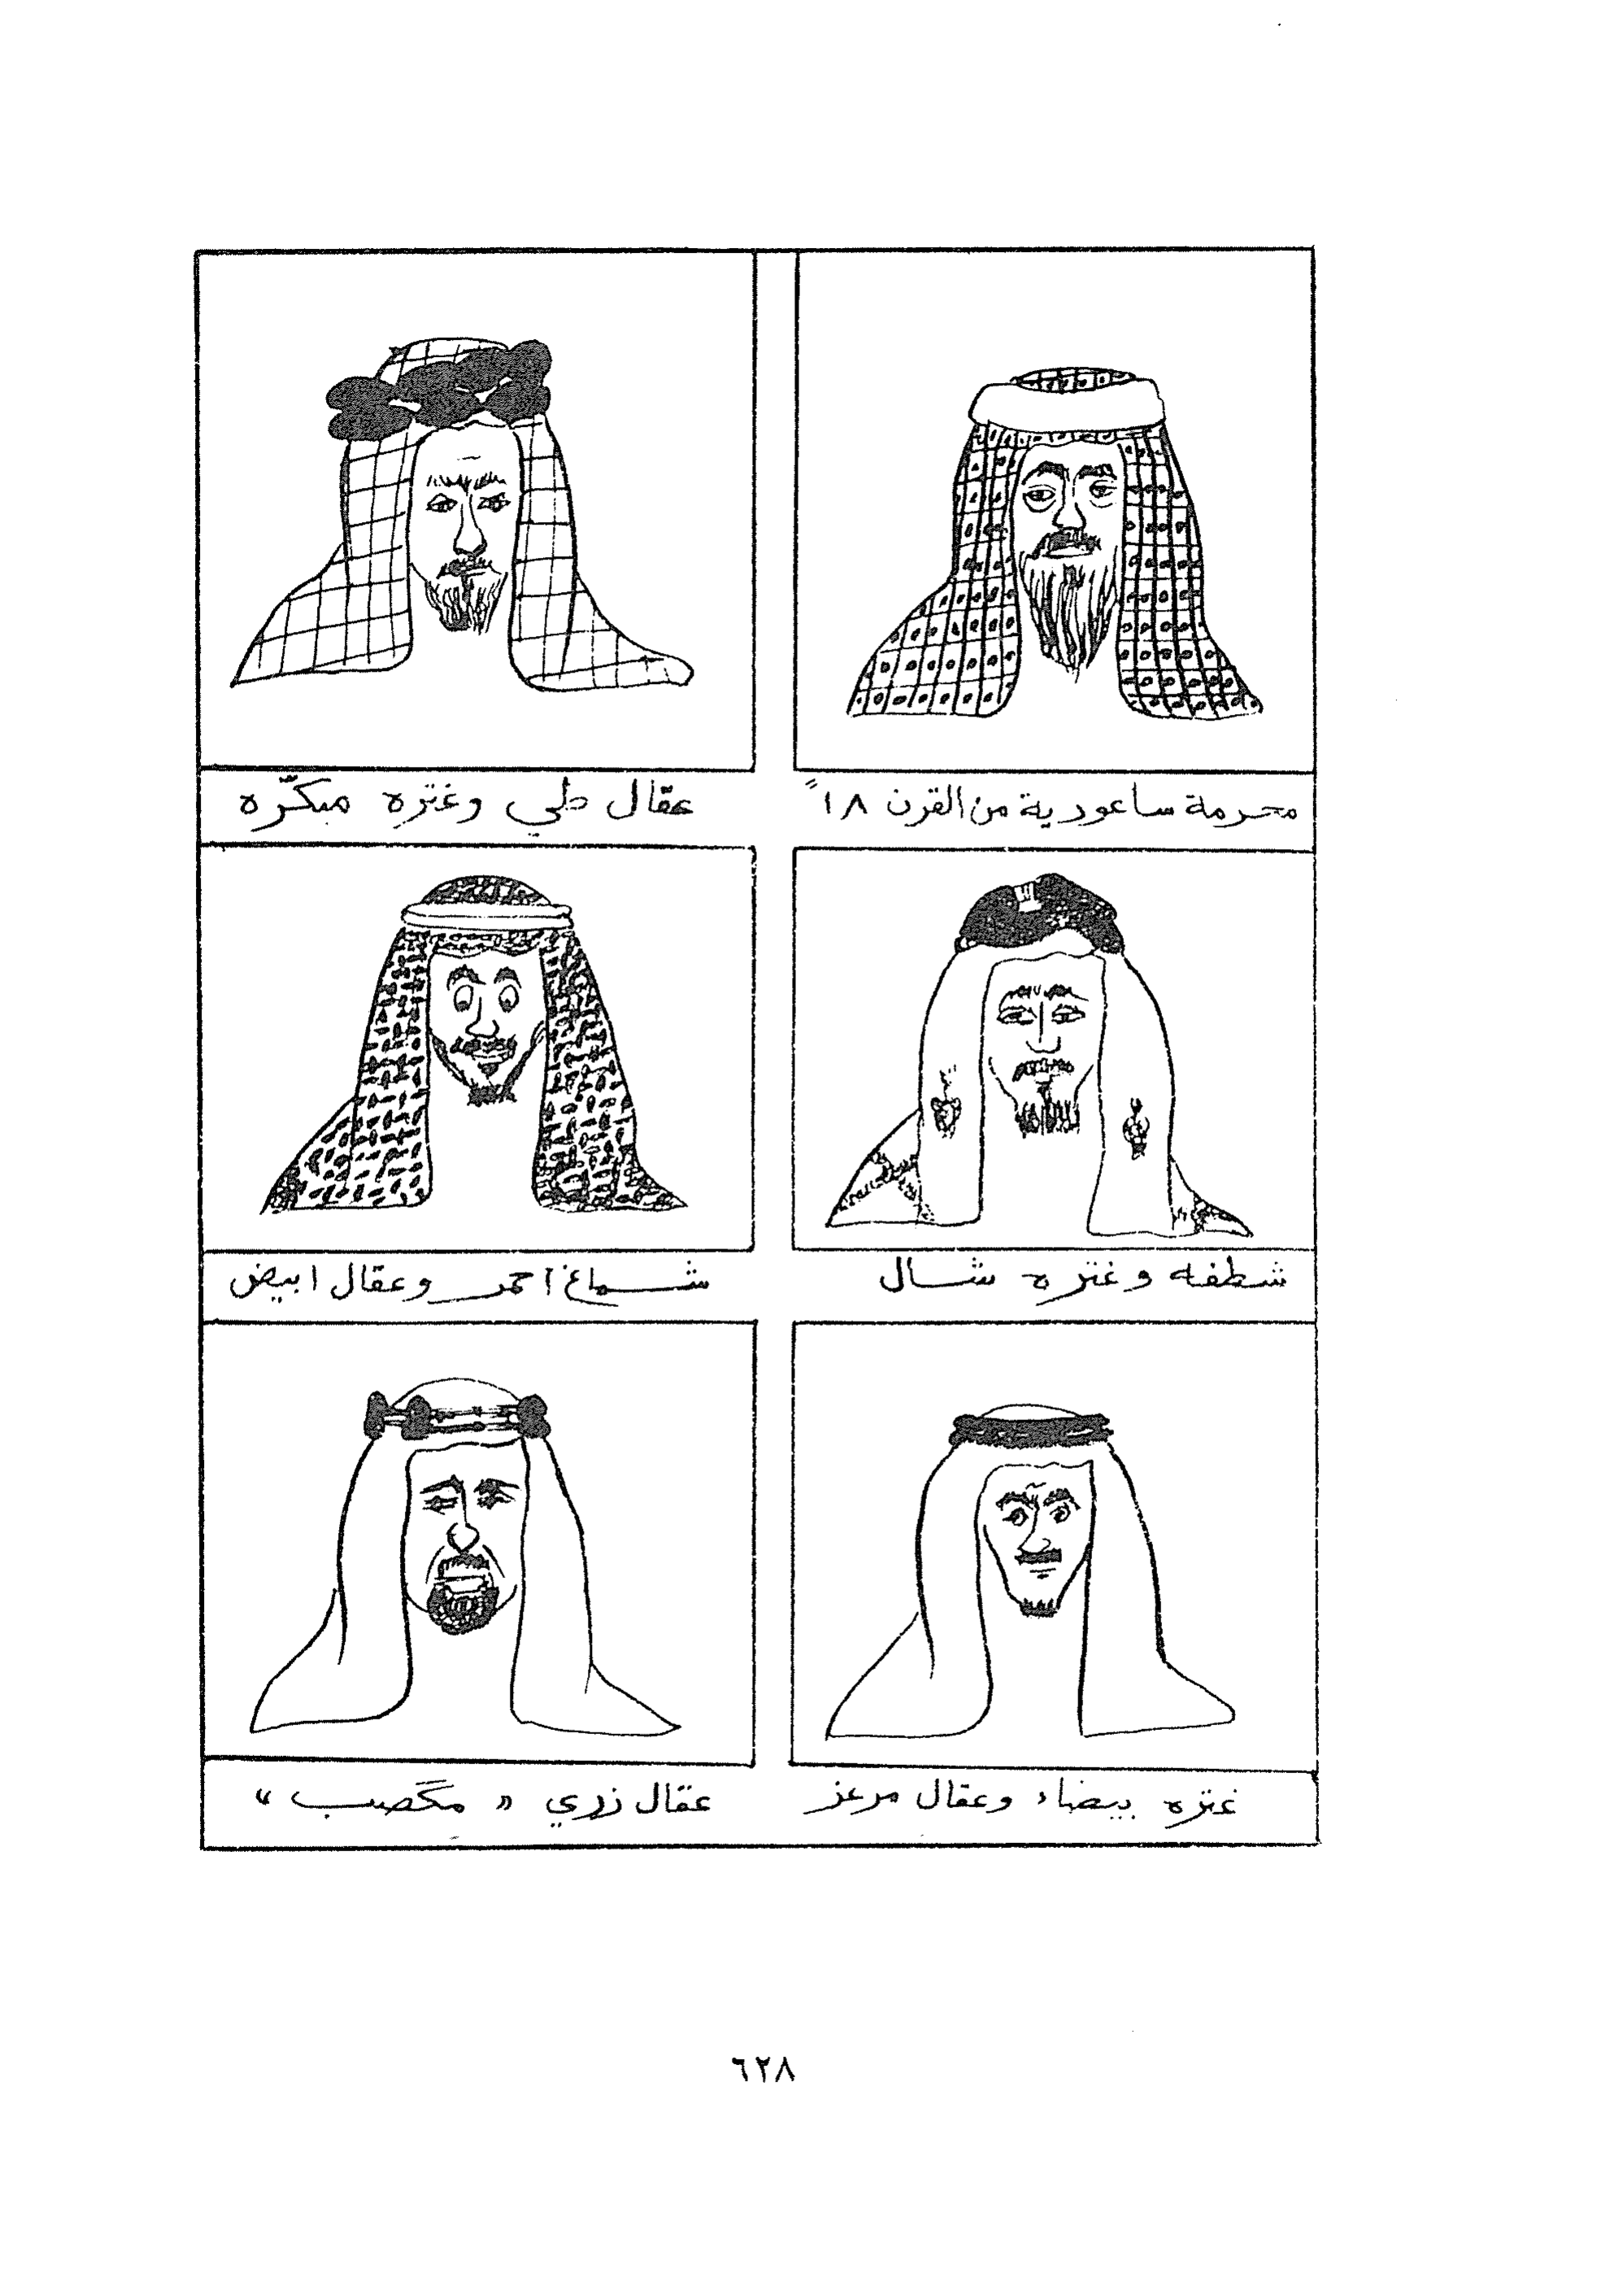 محرمة ساعودية من القرن ١٨"
عقال طي وغتره مبكّره
شطفه وغتره شال
شماغ احمر وعقال ابيض
غتره بيضاء وعقال مرعز
عقال زري « مگصب »
٦٢٨